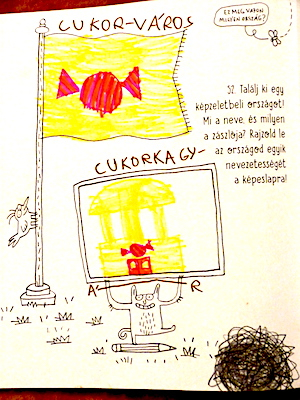 CUKOR-VÁROS
EZ MEG VAJON
MILYEN ORSZÁG?
52. Találj ki egy
képzeletbeli országot!
Mi a neve, és milyen
a zászlója? Rajzold le
az országod egyik
nevezetességét
a képeslapra!
CUKORKAGY-
Á R